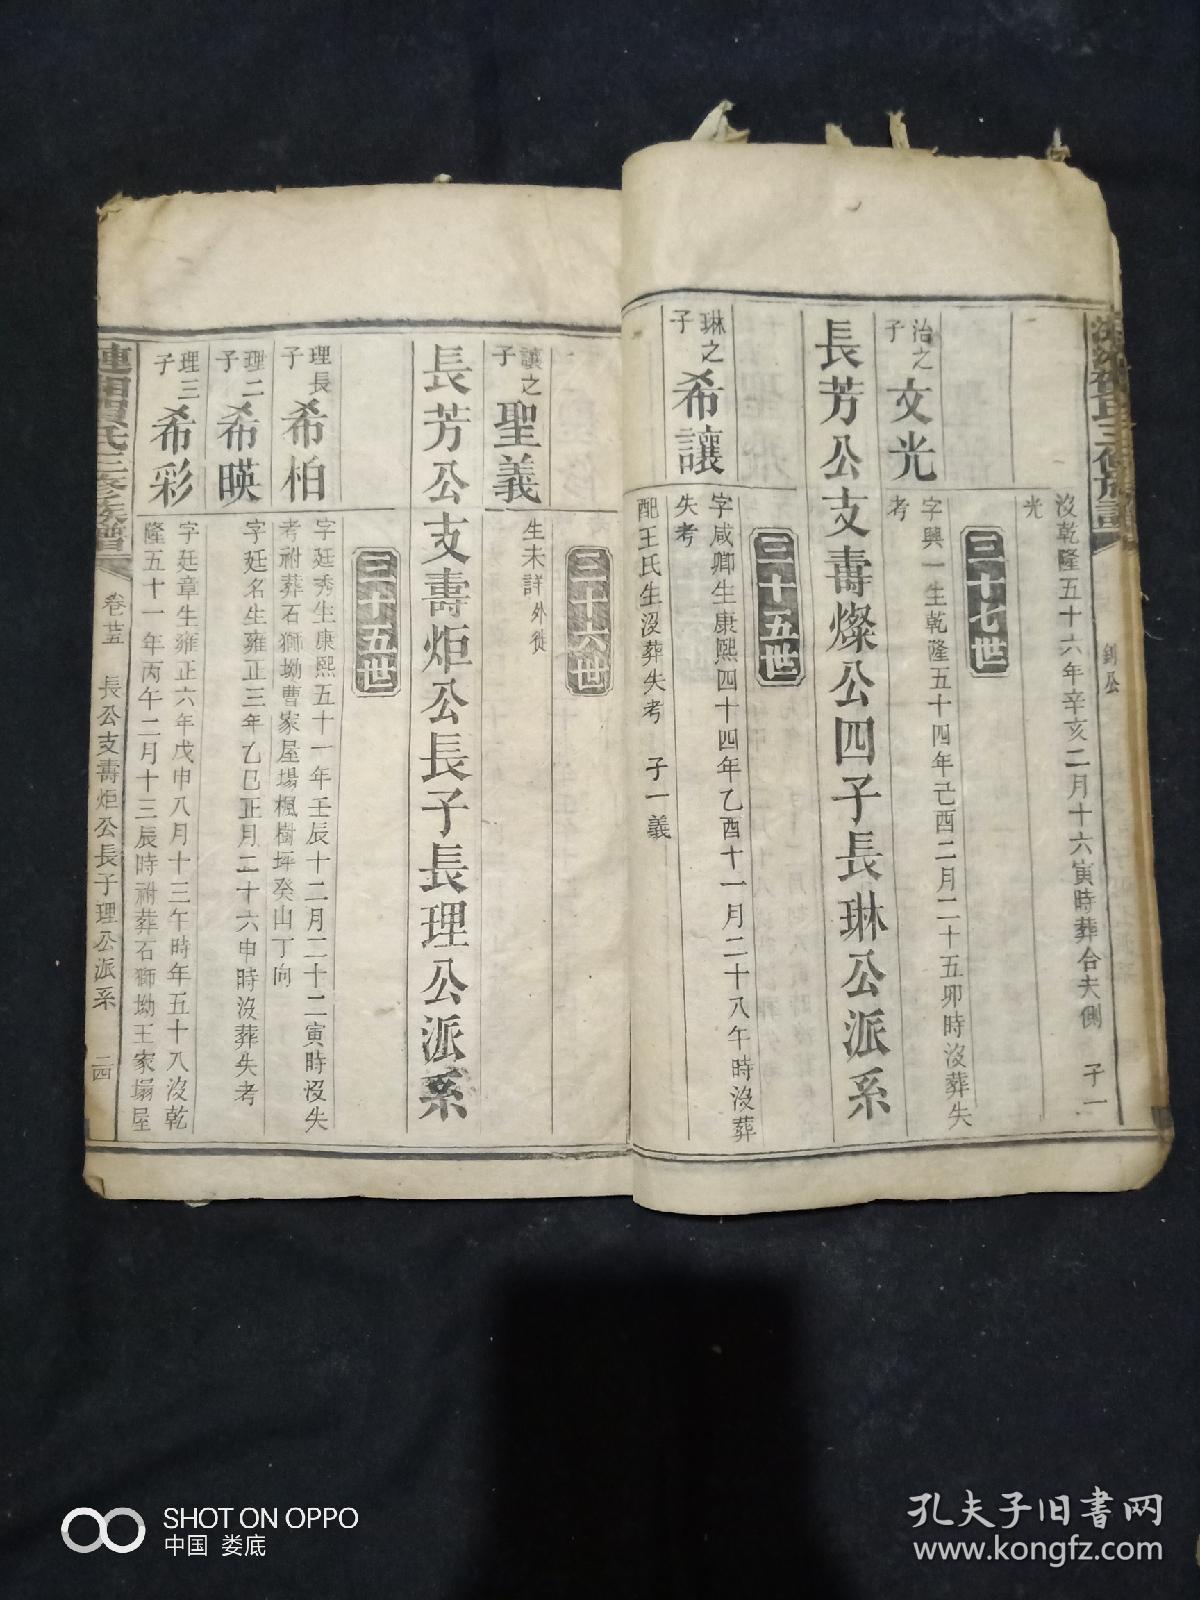 沒乾隆五十六年辛亥二月十六寅時葬合夫側 子一
光
三十七世
治之子 文光
字興一生乾隆五十四年己酉二月二十五卯時沒葬失
考
長芳公支壽燦公四子長琳公派系
三十五世
琳之子 希讓
字咸卿生康熙四十四年乙酉十一月二十八午時沒葬
失考
配王氏生沒葬失考 子一義
三十六世
讓之子 聖義
生未詳外徙
長芳公支壽炬公長子長理公派系
三十五世
理長子 希柏
字廷秀生康熙五十一年壬辰十二月二十二寅時沒失
考祔葬石獅坳曹家屋場楓樹坪癸山丁向
理二子 希暎
字廷名生雍正三年乙巳正月二十六申時沒葬失考
理三子 希彩
字廷章生雍正六年戊申八月十三午時年五十八沒乾
隆五十一年丙午二月十三辰時祔葬石獅坳王家塌屋
氏三修族譜
卷廿五
長公支壽炬公長子理公派系
二四
SHOT ON OPPO
中国 娄底
孔夫子旧书网
www.kongfz.com